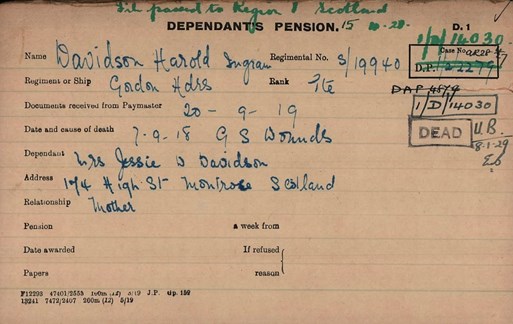 File passed to Region 1 Scotland
DEPENDANT'S PENSION. 15 10-28.
D. 1
1/D/14030
Name Davidson Harold Ingram Regimental No. S/19940
Case No.
D.P. 2279
Regiment or Ship Gordon Hdrs Rank Pte
DAP
1/D/14030
Documents received from Paymaster 20-9-19
DEAD
8-1-29
Date and cause of death 7-9-18 G S Wounds
Dependant Mrs Jessie D Davidson
Address 174 High St Montrose Scotland
Relationship Mother
Pension a week from
Date awarded If refused
Papers reason
F12293 47401/2553 100m (12) 3/19 J.P. Gp. 159
13241 7472/2407 260m (12) 5/19